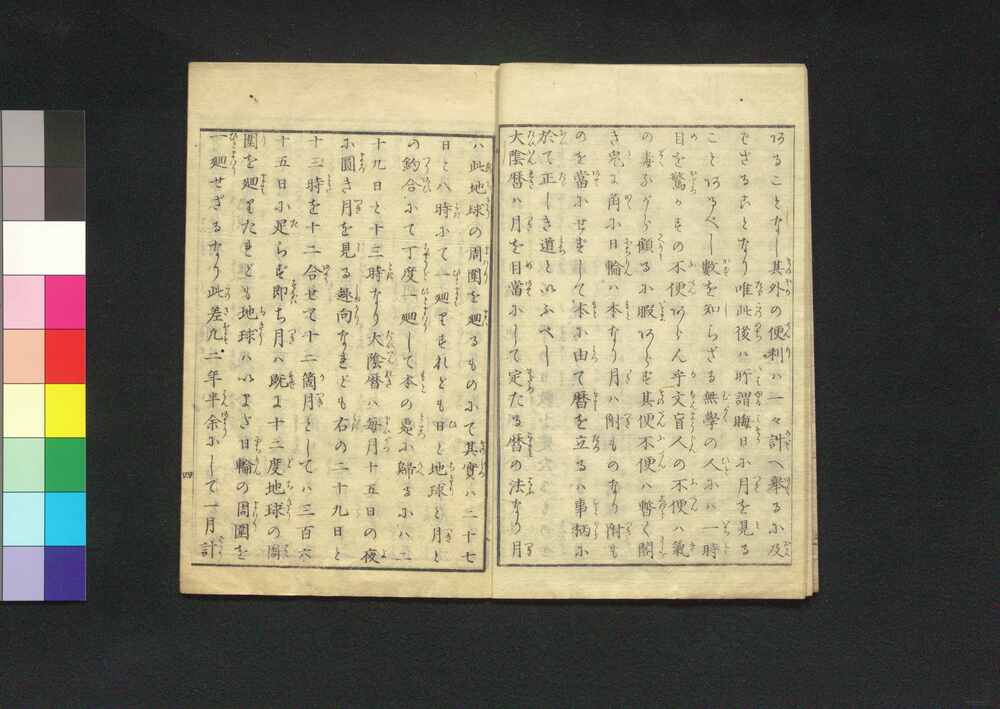 あることなし其外の便利ハ一々計へ擧るに及
ばざることなり唯此後ハ所謂晦日に月を見る
ことあるべし數を知らざる無學の人にハ一時
目を驚かすの不便あらん乎文盲人の不便ハ氣
の毒ながら顧るに暇あらず其便不便ハ暫く閣
き兎に角に日輪ハ本なり月ハ附ものなり附も
のを當にせずして本に由て暦を立るハ事柄に
於て正しき道といふべし
大陰暦ハ月を目當にして定たる暦の法なり月
ハ此地球の周圍を廻るものにて其實ハ二十七
日と八時にて一廻りすれとも日と地球と月と
の釣合にて丁度一廻して本の處に歸るにハ二
十九日と十三時なり大陰暦ハ毎月十五日の夜
に圓き月を見る趣向なれども右の二十九日と
十三時を十二合せて十二箇月としてハ三百六
十五日に足らず即ち月ハ既に十二度地球の周
圍を廻りたれども地球ハいまだ日輪の周圍を
一廻せざるなり此差凡二年半余にして一月計
四